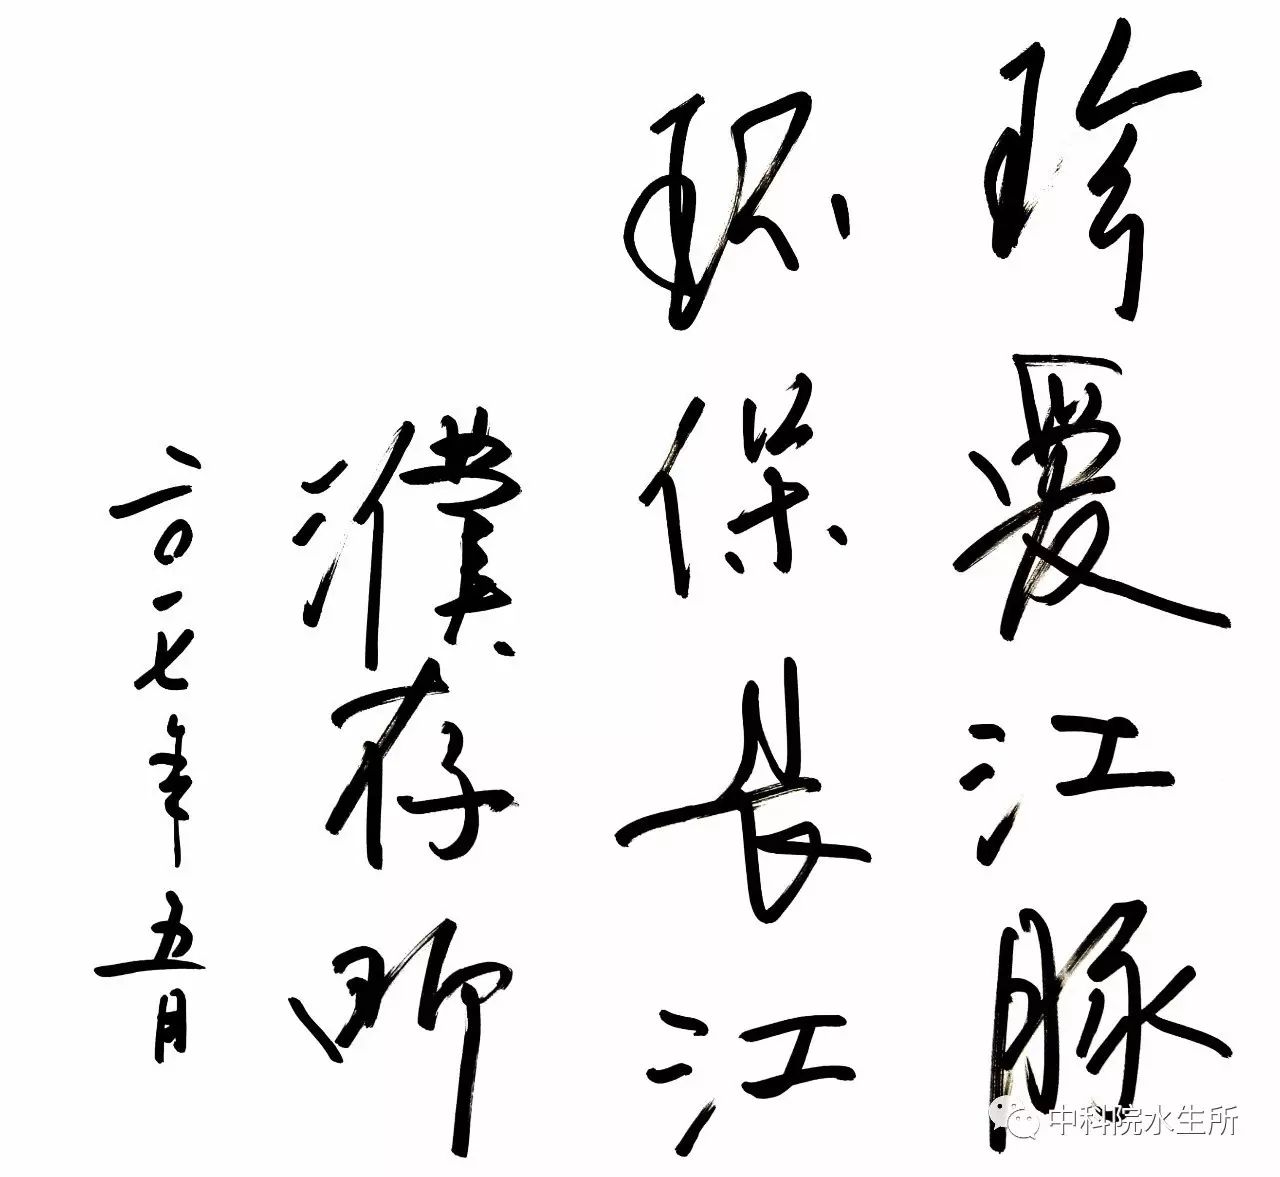 珍爱江豚
环保长江
濮存昕
二〇一七年五月
中科院水生所